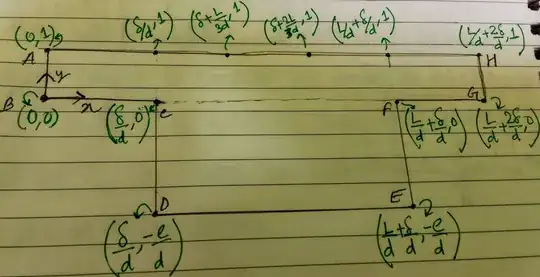 (0,1)
(δ/d, 1)
(δ + L/3d, 1)
(δ + 2L/3d, 1)
(L/d + δ/d, 1)
(L/d + 2δ/d, 1)
A
H
y
B
x
C
F
G
(0,0)
(δ/d, 0)
(L/d + δ/d, 0)
(L/d + 2δ/d, 0)
D
E
(δ/d, -e/d)
(L/d + δ/d, -e/d)